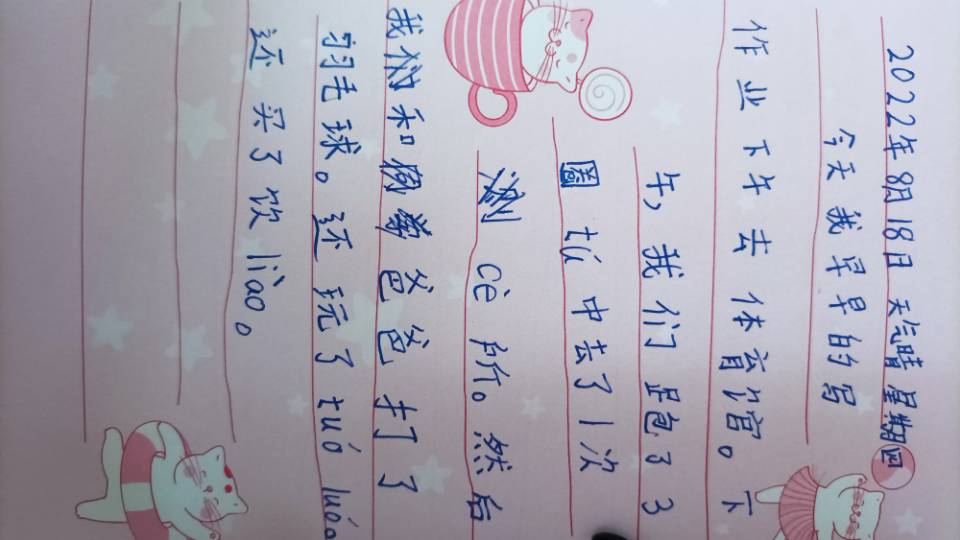 2022年8月18日 天气晴 星期四
今天我早早的写
作业下午去体育馆。下
午，我们跑了3
圈tú中去了1次
cè所。然后
我们和爸爸打了
羽毛球。还玩了tuó luó
还买了饮liào。